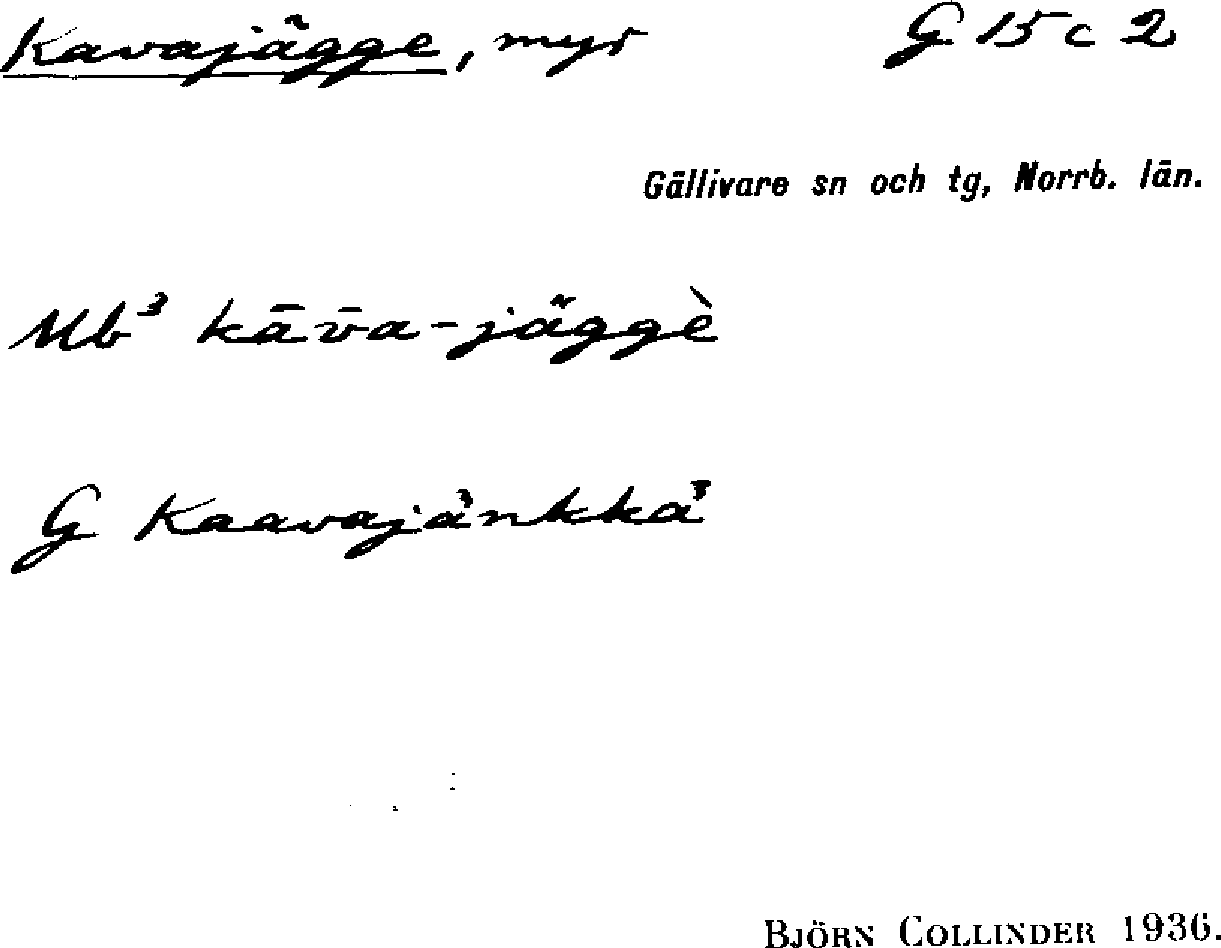 Kavajägge, myr G 15 c 2
Gällivare sn och tg, Norrb. län.
Mb³ kāv̄a-jäggè
G Kaavajänkkä
BJÖRN COLLINDER 1936.